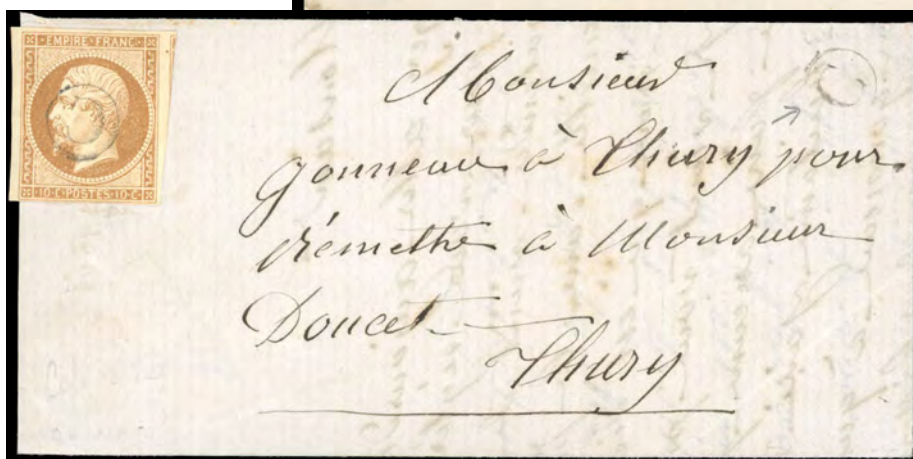 EMPIRE FRANC
10 C POSTES 10 C
Monsieur
Gonneau à Thury pour
remettre à Monsieur
Doucet
Thury